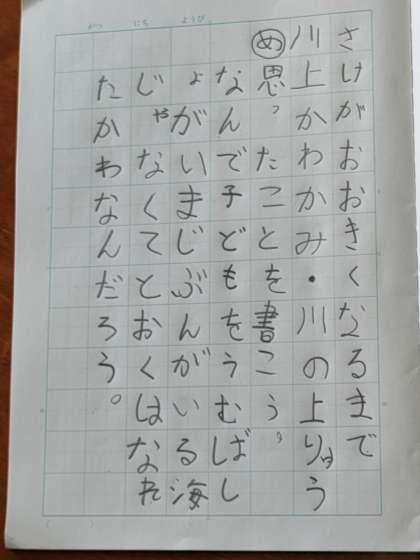 がつ にち ようび
さけがおおきくなるまで
川上かわかみ・川の上りゅう
め思ったことを書こう。
なんで子どもをうむばし
ょがいまじぶんがいる海
じゃなくてとおくはなれ
たかわなんだろう。